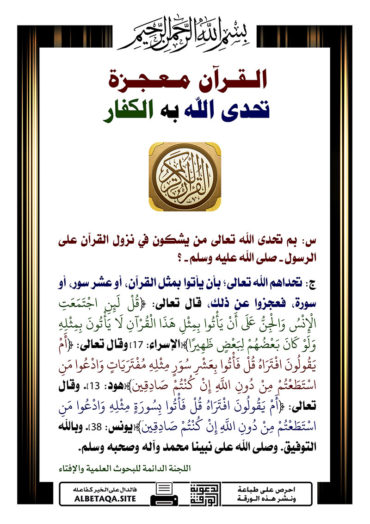 بسم الله الرحمن الرحيم
القرآن معجزة
تحدى الله به الكفار
القرآن الكريم
س: بم تحدى الله تعالى من يشكون في نزول القرآن على
الرسول ـ صلى الله عليه وسلم ـ ؟
ج: تحداهم الله تعالى؛ بأن يأتوا بمثل القرآن، أو عشر سور، أو
سورة، فعجزوا عن ذلك، قال تعالى: ﴿قُلْ لَئِنِ اجْتَمَعَتِ
الْإِنْسُ وَالْجِنُّ عَلَى أَنْ يَأْتُوا بِمِثْلِ هَذَا الْقُرْآنِ لَا يَأْتُونَ بِمِثْلِهِ
وَلَوْ كَانَ بَعْضُهُمْ لِبَعْضٍ ظَهِيرًا﴾الإسراء: 17؛ وقال تعالى: ﴿أَمْ
يَقُولُونَ افْتَرَاهُ قُلْ فَأْتُوا بِعَشْرِ سُوَرٍ مِثْلِهِ مُفْتَرَيَاتٍ وَادْعُوا مَنِ
اسْتَطَعْتُمْ مِنْ دُونِ اللَّهِ إِنْ كُنْتُمْ صَادِقِينَ﴾هود: 13، وقال
تعالى: ﴿أَمْ يَقُولُونَ افْتَرَاهُ قُلْ فَأْتُوا بِسُورَةٍ مِثْلِهِ وَادْعُوا مَنِ
اسْتَطَعْتُمْ مِنْ دُونِ اللَّهِ إِنْ كُنْتُمْ صَادِقِينَ﴾يونس: 38، وبالله
التوفيق. وصلى الله على نبينا محمد وآله وصحبه وسلم.
اللجنة الدائمة للبحوث العلمية والإفتاء
احرص على طباعة
ونشر هذه الورقة
الورقة
الدعوية
فالدال على الخير كفاعله
ALBETAQA.SITE